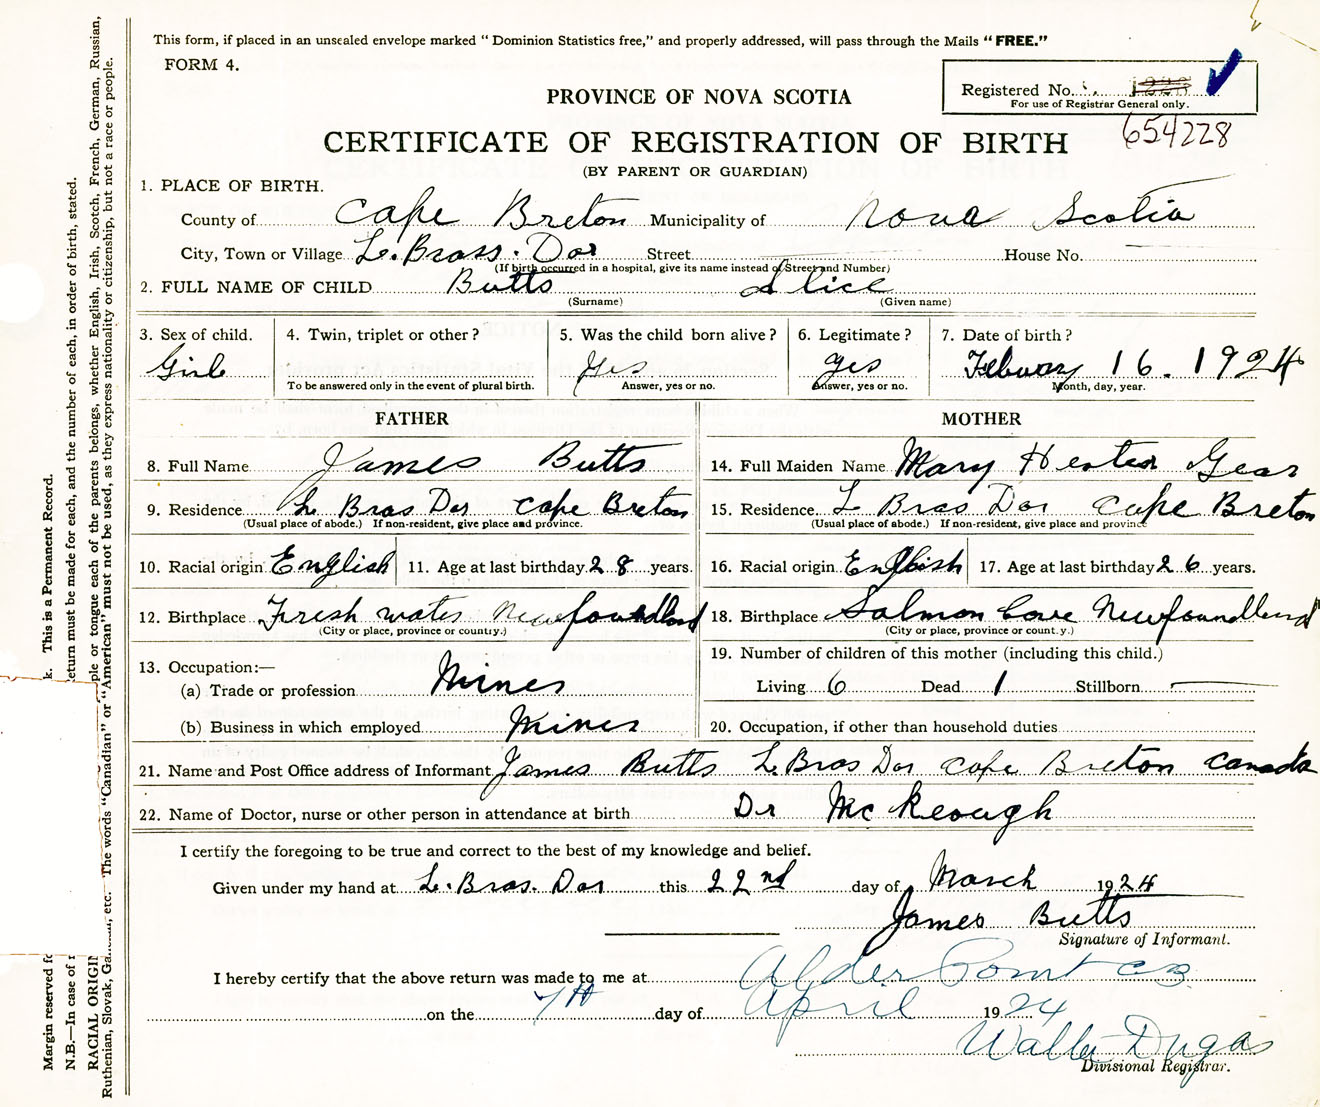 This form, if placed in an unsealed envelope marked "Dominion Statistics free," and properly addressed, will pass through the Mails "FREE."
FORM 4.
Registered No.
For use of Registrar General only.
654228
PROVINCE OF NOVA SCOTIA
CERTIFICATE OF REGISTRATION OF BIRTH
(BY PARENT OR GUARDIAN)
1. PLACE OF BIRTH.
County of Cape Breton Municipality of Nova Scotia
City, Town or Village L. Brass. Dor Street House No.
(If birth occurred in a hospital, give its name instead of Street and Number)
2. FULL NAME OF CHILD Butts Alice
(Surname) (Given name)
3. Sex of child. 4. Twin, triplet or other? 5. Was the child born alive? 6. Legitimate? 7. Date of birth?
Girl Yes yes Febuary 16. 1924
To be answered only in the event of plural birth. Answer, yes or no. Answer, yes or no. Month, day, year.
FATHER MOTHER
8. Full Name James Butts 14. Full Maiden Name Mary Hester Gear
9. Residence L Bras Dor Cape Breton 15. Residence L Bras Dor Cape Breton
(Usual place of abode.) If non-resident, give place and province. (Usual place of abode.) If non-resident, give place and province
10. Racial origin English 11. Age at last birthday 28 years. 16. Racial origin English 17. Age at last birthday 26 years.
12. Birthplace Fresh water Newfoundland 18. Birthplace Salmon Cove Newfoundland
(City or place, province or country.) (City or place, province or country.)
13. Occupation:— 19. Number of children of this mother (including this child.)
(a) Trade or profession Miner Living 6 Dead 1 Stillborn —
(b) Business in which employed Mines 20. Occupation, if other than household duties
21. Name and Post Office address of Informant James Butts L. Bras Dor Cape Breton Canada
22. Name of Doctor, nurse or other person in attendance at birth Dr McKeough
I certify the foregoing to be true and correct to the best of my knowledge and belief.
Given under my hand at L. Bras. Dor this 22nd day of March 1924
James Butts
Signature of Informant.
I hereby certify that the above return was made to me at Alder Point CB.
on the 7th day of April 1924
Walter Dugas
Divisional Registrar.
Margin reserved k. This is a Permanent Record.
N.B.—In case of return must be made for each, and the number of each, in order of birth, stated.
RACIAL ORIGIN ple or tongue each of the parents belongs, whether English, Irish, Scotch, French, German, Russian,
Ruthenian, Slovak, etc. The words "Canadian" or "American" must not be used, as they express nationality or citizenship, but not a race or people.